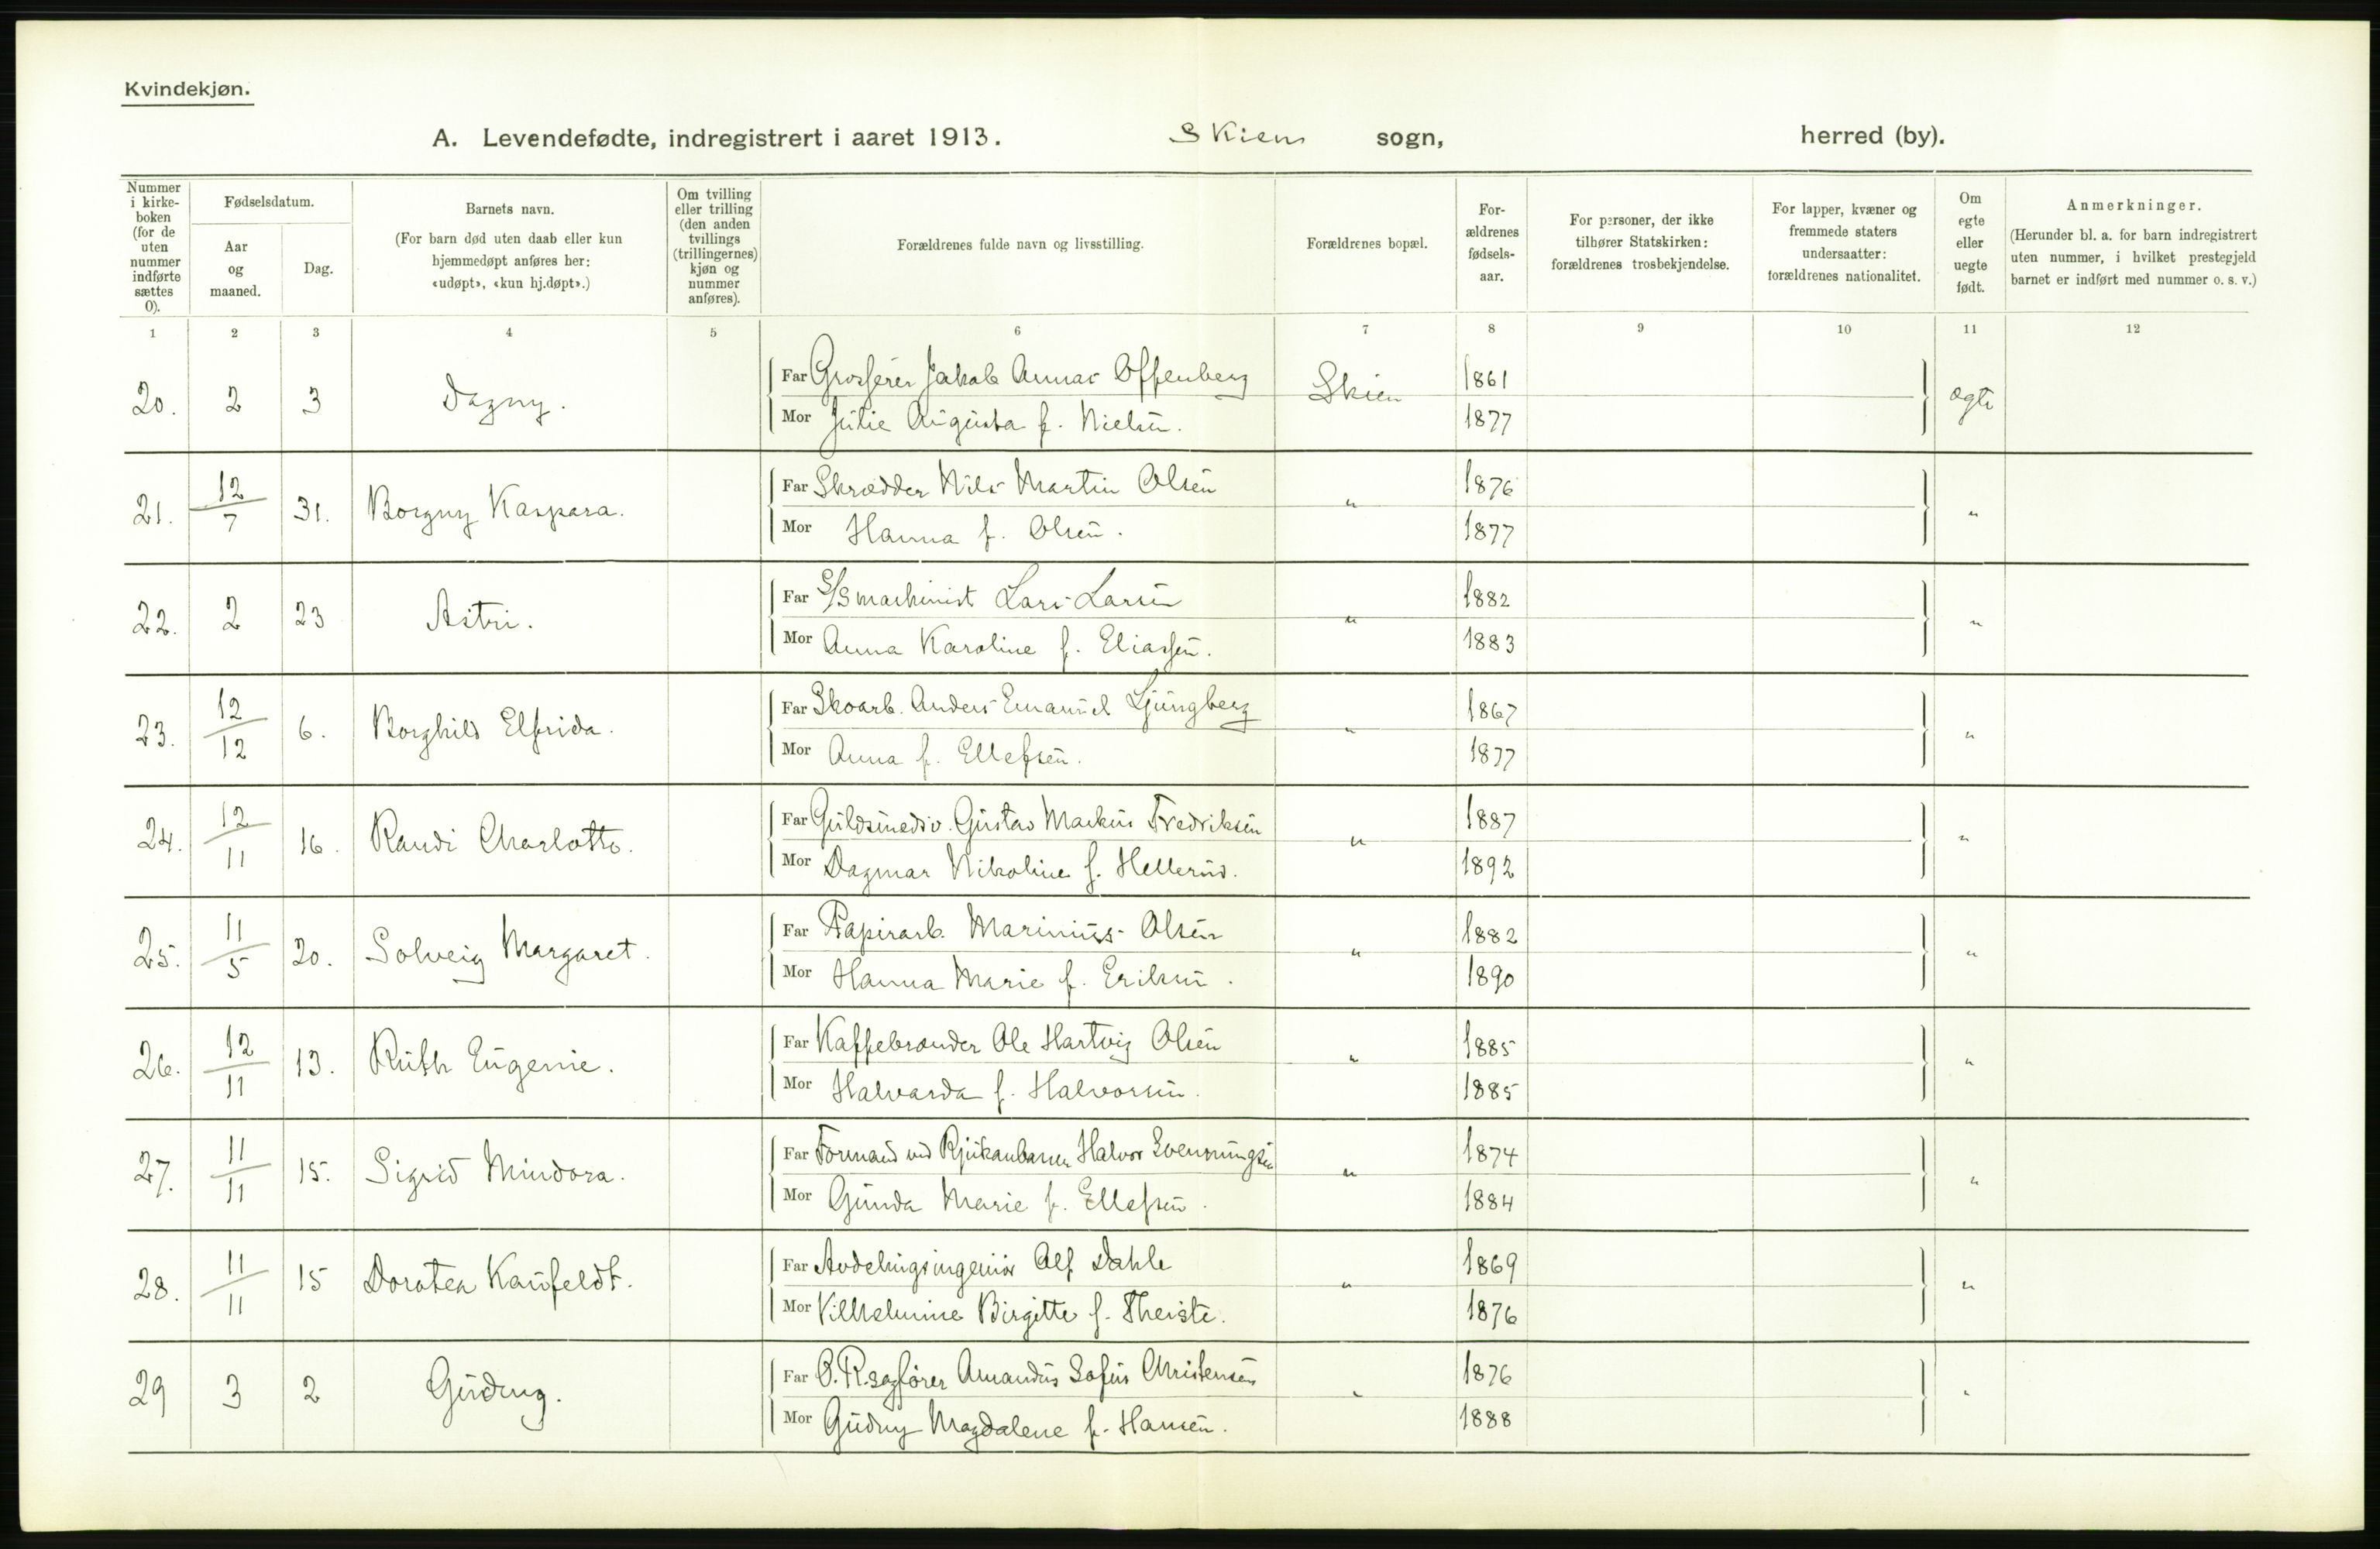 Kvindekjøn.
A. Levendefødte, indregistrert i aaret 1913. Skiens sogn, herred (by).
Nummer i kirke-boken (for de uten nummer indførte sættes 0).
Fødselsdatum.
Aar og maaned.
Dag.
Barnets navn.
(For barn død uten daab eller kun hjemmedøpt anføres her: «udøpt», «kun hj.døpt».)
Om tvilling eller trilling (den anden tvillings (trillingernes) kjøn og nummer anføres).
Forældrenes fulde navn og livsstilling.
Forældrenes bopæl.
For-ældrenes fødsels-aar.
For personer, der ikke tilhører Statskirken: forældrenes trosbekjendelse.
For lapper, kvæner og fremmede staters undersaatter: forældrenes nationalitet.
Om egte eller uegte født.
Anmerkninger.
(Herunder bl. a. for barn indregistrert uten nummer, i hvilket prestegjeld barnet er indført med nummer o. s. v.)
1 2 3 4 5 6 7 8 9 10 11 12
20. 2 3 Dagny. Far Grosserer Jakob Annar Offenberg Skien 1861 ægte
Mor Julie Augusta f. Nielsen. 1877
21. 12/7 31. Borgny Kaspara. Far Skrædder Nils Martin Olsen " 1876 "
Mor Hanna f. Olsen. 1877
22. 2 23 Astri. Far S/S maskinist Lars Larsen " 1882 "
Mor Anna Karoline f. Eliassen. 1883
23. 12/12 6. Borghild Elfrida. Far Skoarb. Anders Emanuel Ljungberg " 1867 "
Mor Anna f. Ellefsen. 1877
24. 12/11 16. Randi Charlotte. Far Guldsmedsv. Gustav Markus Fredriksen " 1887 "
Mor Dagmar Nikoline f. Hellerud. 1892
25. 11/5 20. Solveig Margaret. Far Papirarb. Marinius Olsen " 1882 "
Mor Hanna Marie f. Eriksen. 1890
26. 12/11 13. Ruth Eugenie. Far Kaffebrænder Ole Hartvig Olsen " 1885 "
Mor Halvarda f. Halvorsen. 1885
27. 11/11 15. Sigrid Mindora. Far Formand ved Rjukanbanen Halvor Svenningsen " 1874 "
Mor Gunda Marie f. Ellefsen. 1884
28. 11/11 15 Dorotea Kaufeldt. Far Avdelingsingeniør Alf Dahle " 1869 "
Mor Vilhelmine Birgitte f. Theiste. 1876
29 3 2 Gudny. Far O.R.sagfører Amandus Sofus Christensen " 1876 "
Mor Gudny Magdalene f. Hansen. 1888